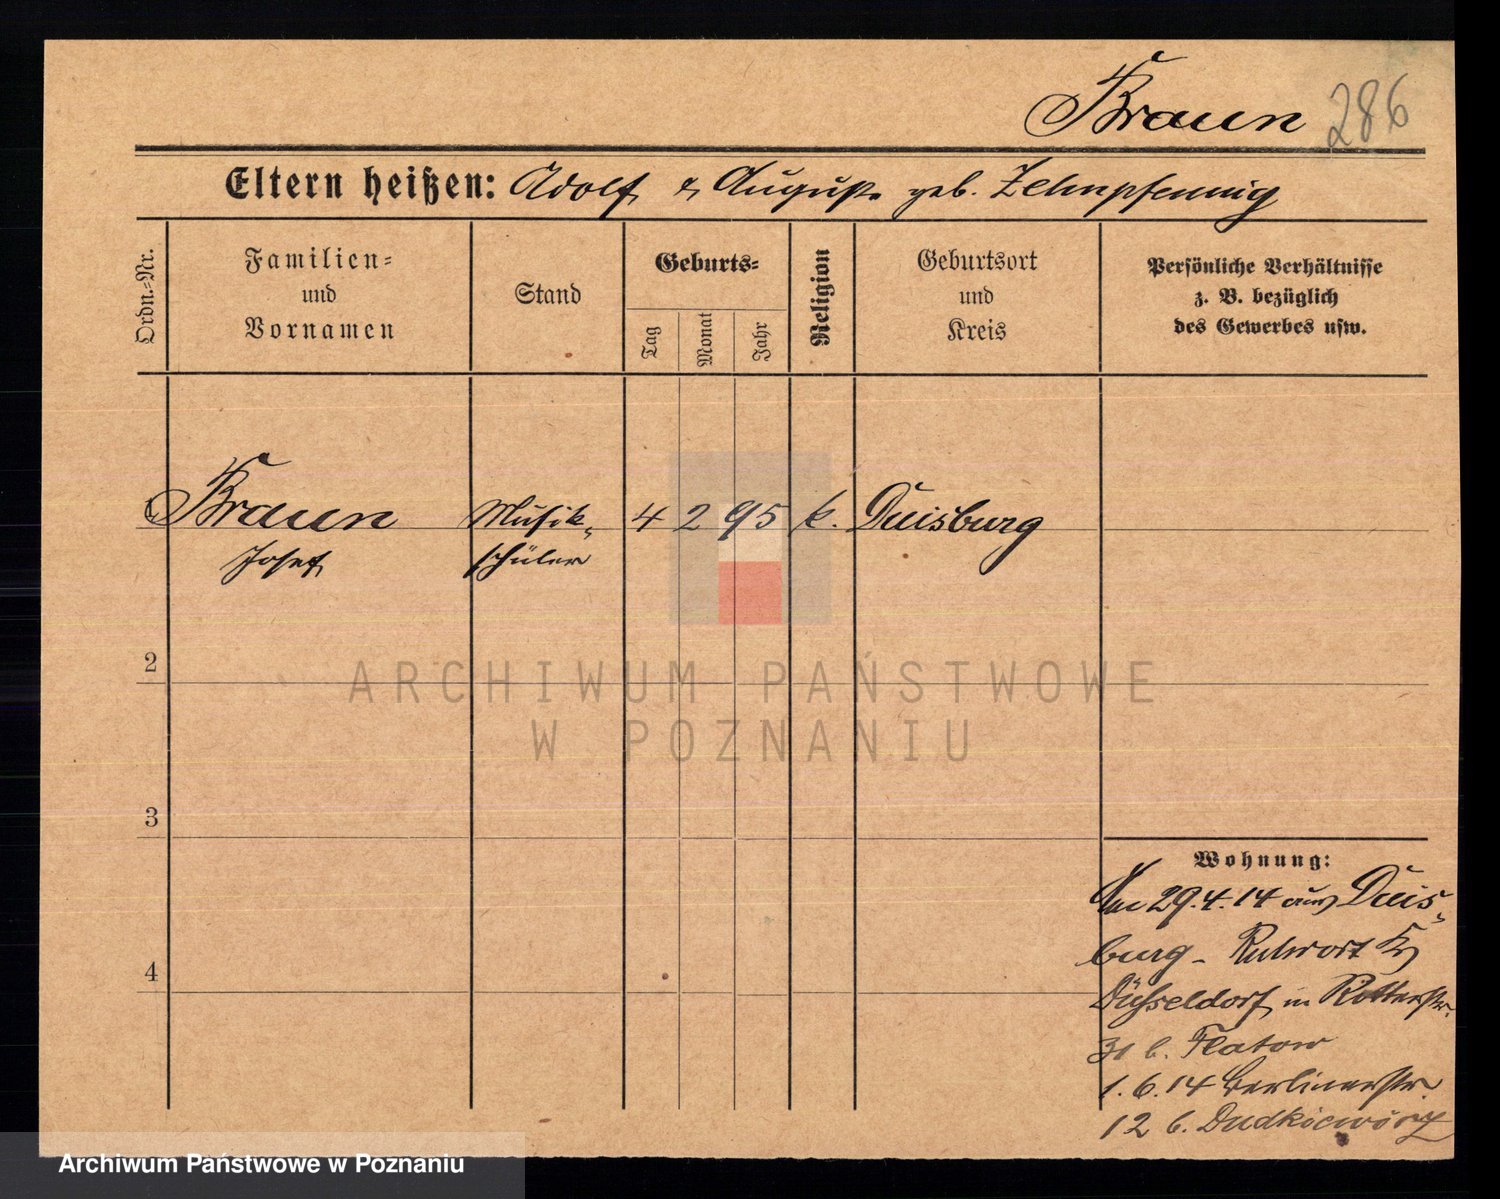 Braun 286
Eltern heißen: Adolf & Auguste geb. Zehnpfennig
Ordn.-Nr.
Familien-
und
Vornamen
Stand
Geburts-
Tag
Monat
Jahr
Religion
Geburtsort
und
Kreis
Persönliche Verhältnisse
z. B. bezüglich
des Gewerbes usw.
Braun Musik- 4 2 95 k. Duisburg
Josef schüler
2
3
4
Wohnung:
Am 29.4.14 aus Duis-
burg - Ruhrort Kr
Düsseldorf in
31 b. Flatow
1.6.14 Berlinerstr.
12 b. Dudkiewicz
ARCHIWUM PAŃSTWOWE
W POZNANIU
Archiwum Państwowe w Poznaniu